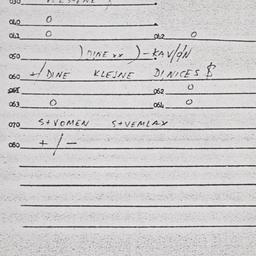 030
040 0
041 0 042 0
050 ) DINE xx ) - KAV/ON
060 +/DINE KLEJNE DINICES
061 062 0
063 0 064 0
070 S+VOMEN S+VEMLAX
080 + / -